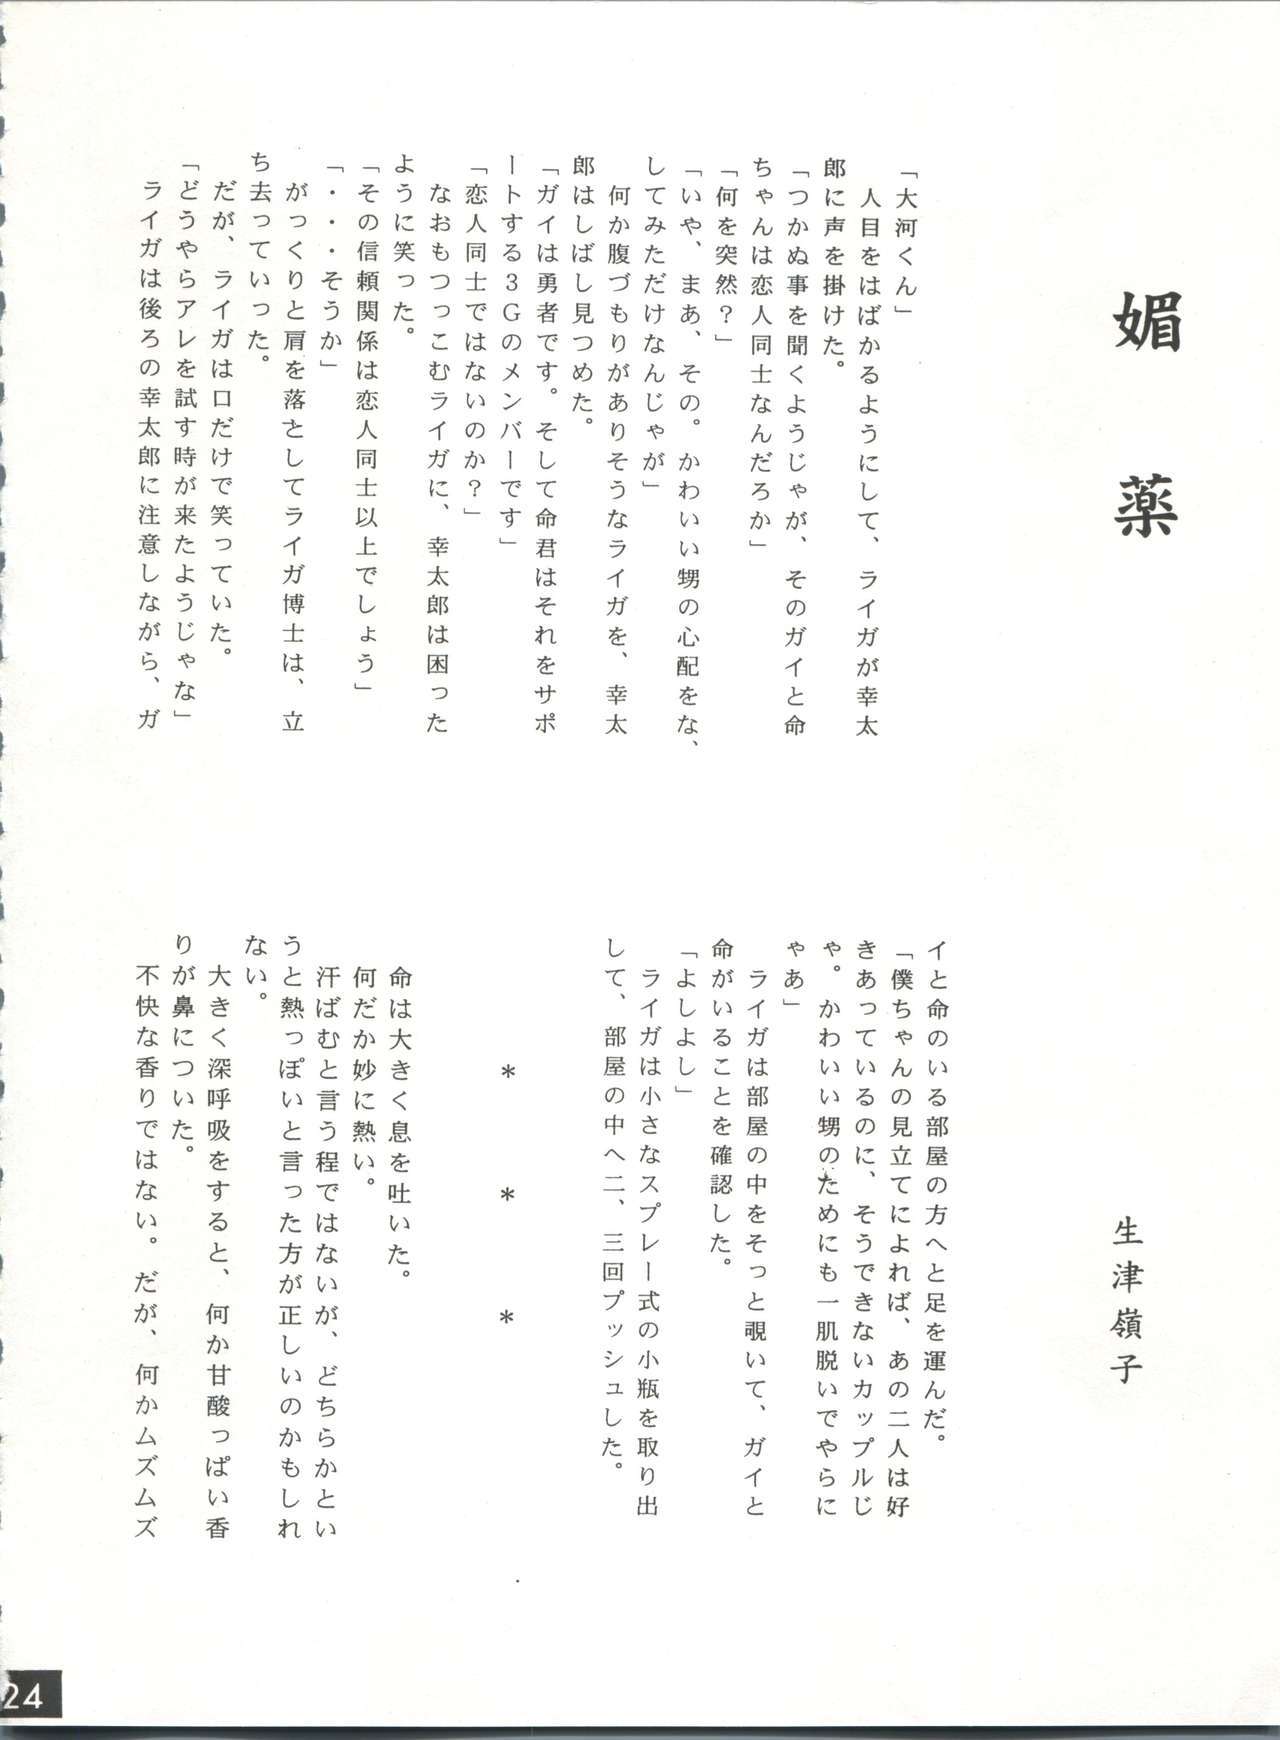 媚薬
生津嶺子
「大河くん」
　人目をはばかるようにして、ライガが幸太
郎に声を掛けた。
「つかぬ事を聞くようじゃが、そのガイと命
ちゃんは恋人同士なんだろか」
「何を突然？」
「いや、まあ、その。かわいい甥の心配をな、
してみただけなんじゃが」
　何か腹づもりがありそうなライガを、幸太
郎はしばし見つめた。
「ガイは勇者です。そして命君はそれをサポ
ートする３Ｇのメンバーです」
「恋人同士ではないのか？」
　なおもつっこむライガに、幸太郎は困った
ように笑った。
「その信頼関係は恋人同士以上でしょう」
「・・・そうか」
　がっくりと肩を落としてライガ博士は、立
ち去っていった。
　だが、ライガは口だけで笑っていた。
「どうやらアレを試す時が来たようじゃな」
　ライガは後ろの幸太郎に注意しながら、ガ
イと命のいる部屋の方へと足を運んだ。
「僕ちゃんの見立てによれば、あの二人は好
きあっているのに、そうできないカップルじ
ゃ。かわいい甥のためにも一肌脱いでやらに
ゃあ」
　ライガは部屋の中をそっと覗いて、ガイと
命がいることを確認した。
「よしよし」
　ライガは小さなスプレー式の小瓶を取り出
して、部屋の中へ二、三回プッシュした。
＊　＊　＊
　命は大きく息を吐いた。
　何だか妙に熱い。
　汗ばむと言う程ではないが、どちらかとい
うと熱っぽいと言った方が正しいのかもしれ
ない。
　大きく深呼吸をすると、何か甘酸っぱい香
りが鼻についた。
　不快な香りではない。だが、何かムズムズ
24